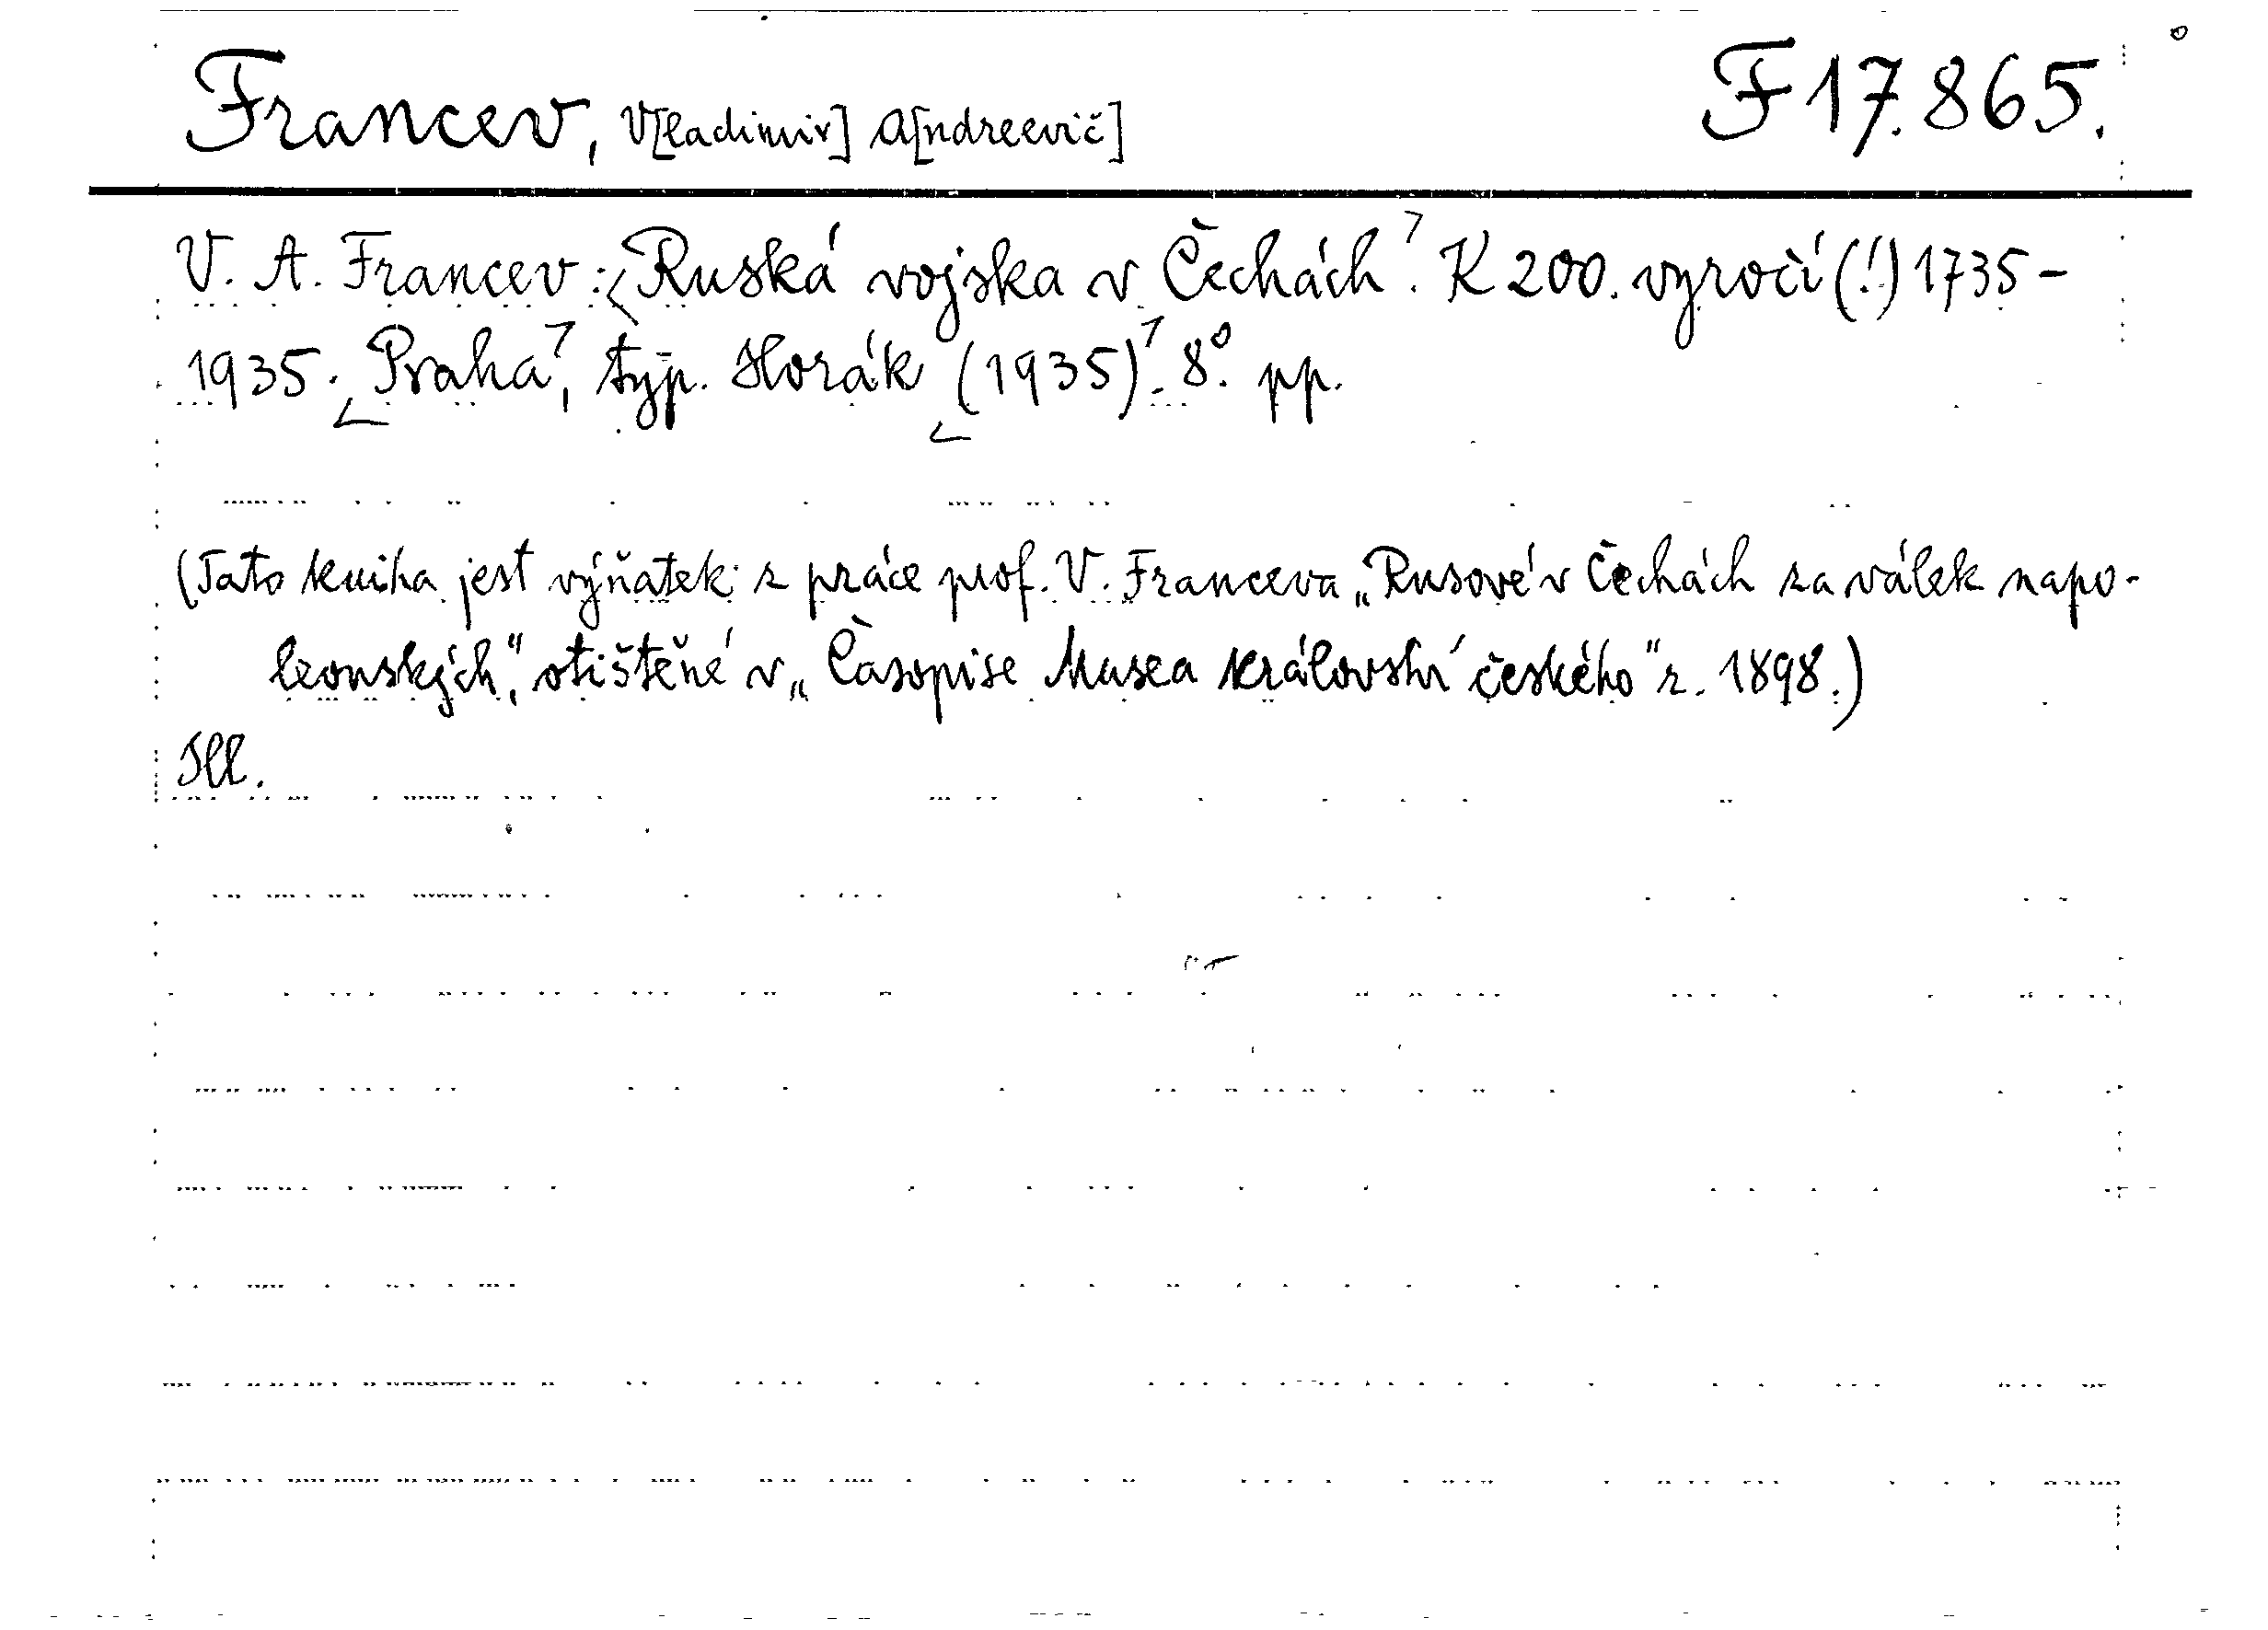 Francev, V[ladimir] A[ndreevič] F 17.865.
V. A. Francev: Ruská vojska v Čechách. K 200. vyročí (!) 1735 –
1935. Praha, typ. Horák (1935). 8°. pp.
(Tato kniha jest výňatek z práce prof. V. Franceva „Rusové v Čechách za válek napo-
leonských“, otištěné v „Časopise Musea království českého“ r. 1898.)
Ill.